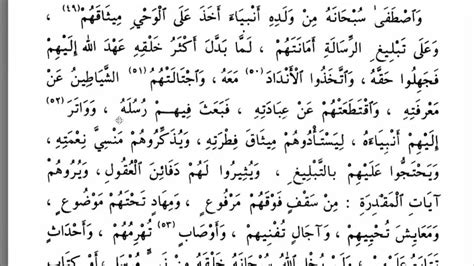 وَاصْطَفَى سُبْحَانَهُ مِنْ وَلَدِهِ أَنْبِيَاءَ أَخَذَ عَلَى الْوَحْيِ مِيثَاقَهُمْ (٤٩) ،
وَعَلَى تَبْلِيغِ الرِّسَالَةِ أَمَانَتَهُمْ ، لَمَّا بَدَّلَ أَكْثَرُ خَلْقِهِ عَهْدَ اللهِ إِلَيْهِمْ
فَجَهِلُوا حَقَّهُ ، وَاتَّخَذُوا الْأَنْدَادَ (٥٠) مَعَهُ ، وَاجْتَالَتْهُمُ (٥١) الشَّيَاطِينُ عَنْ
مَعْرِفَتِهِ ، وَاقْتَطَعَتْهُمْ عَنْ عِبَادَتِهِ ، فَبَعَثَ فِيهِمْ رُسُلَهُ ، وَوَاتَرَ (٥٢)
إِلَيْهِمْ أَنْبِيَاءَهُ ، لِيَسْتَأْدُوهُمْ مِيثَاقَ فِطْرَتِهِ ، وَيُذَكِّرُوهُمْ مَنْسِيَّ نِعْمَتِهِ ،
وَيَحْتَجُّوا عَلَيْهِمْ بِالتَّبْلِيغِ ، وَيُثِيرُوا لَهُمْ دَفَائِنَ الْعُقُولِ ، وَيُرُوهُمْ
آيَاتِ الْمَقْدِرَةِ : مِنْ سَقْفٍ فَوْقَهُمْ مَرْفُوعٍ ، وَمِهَادٍ تَحْتَهُمْ مَوْضُوعٍ ،
وَمَعَايِشَ تُحْيِيهِمْ ، وَآجَالٍ تُفْنِيهِمْ ، وَأَوْصَابٍ (٥٣) تُهْرِمُهُمْ ، وَأَحْدَاثٍ